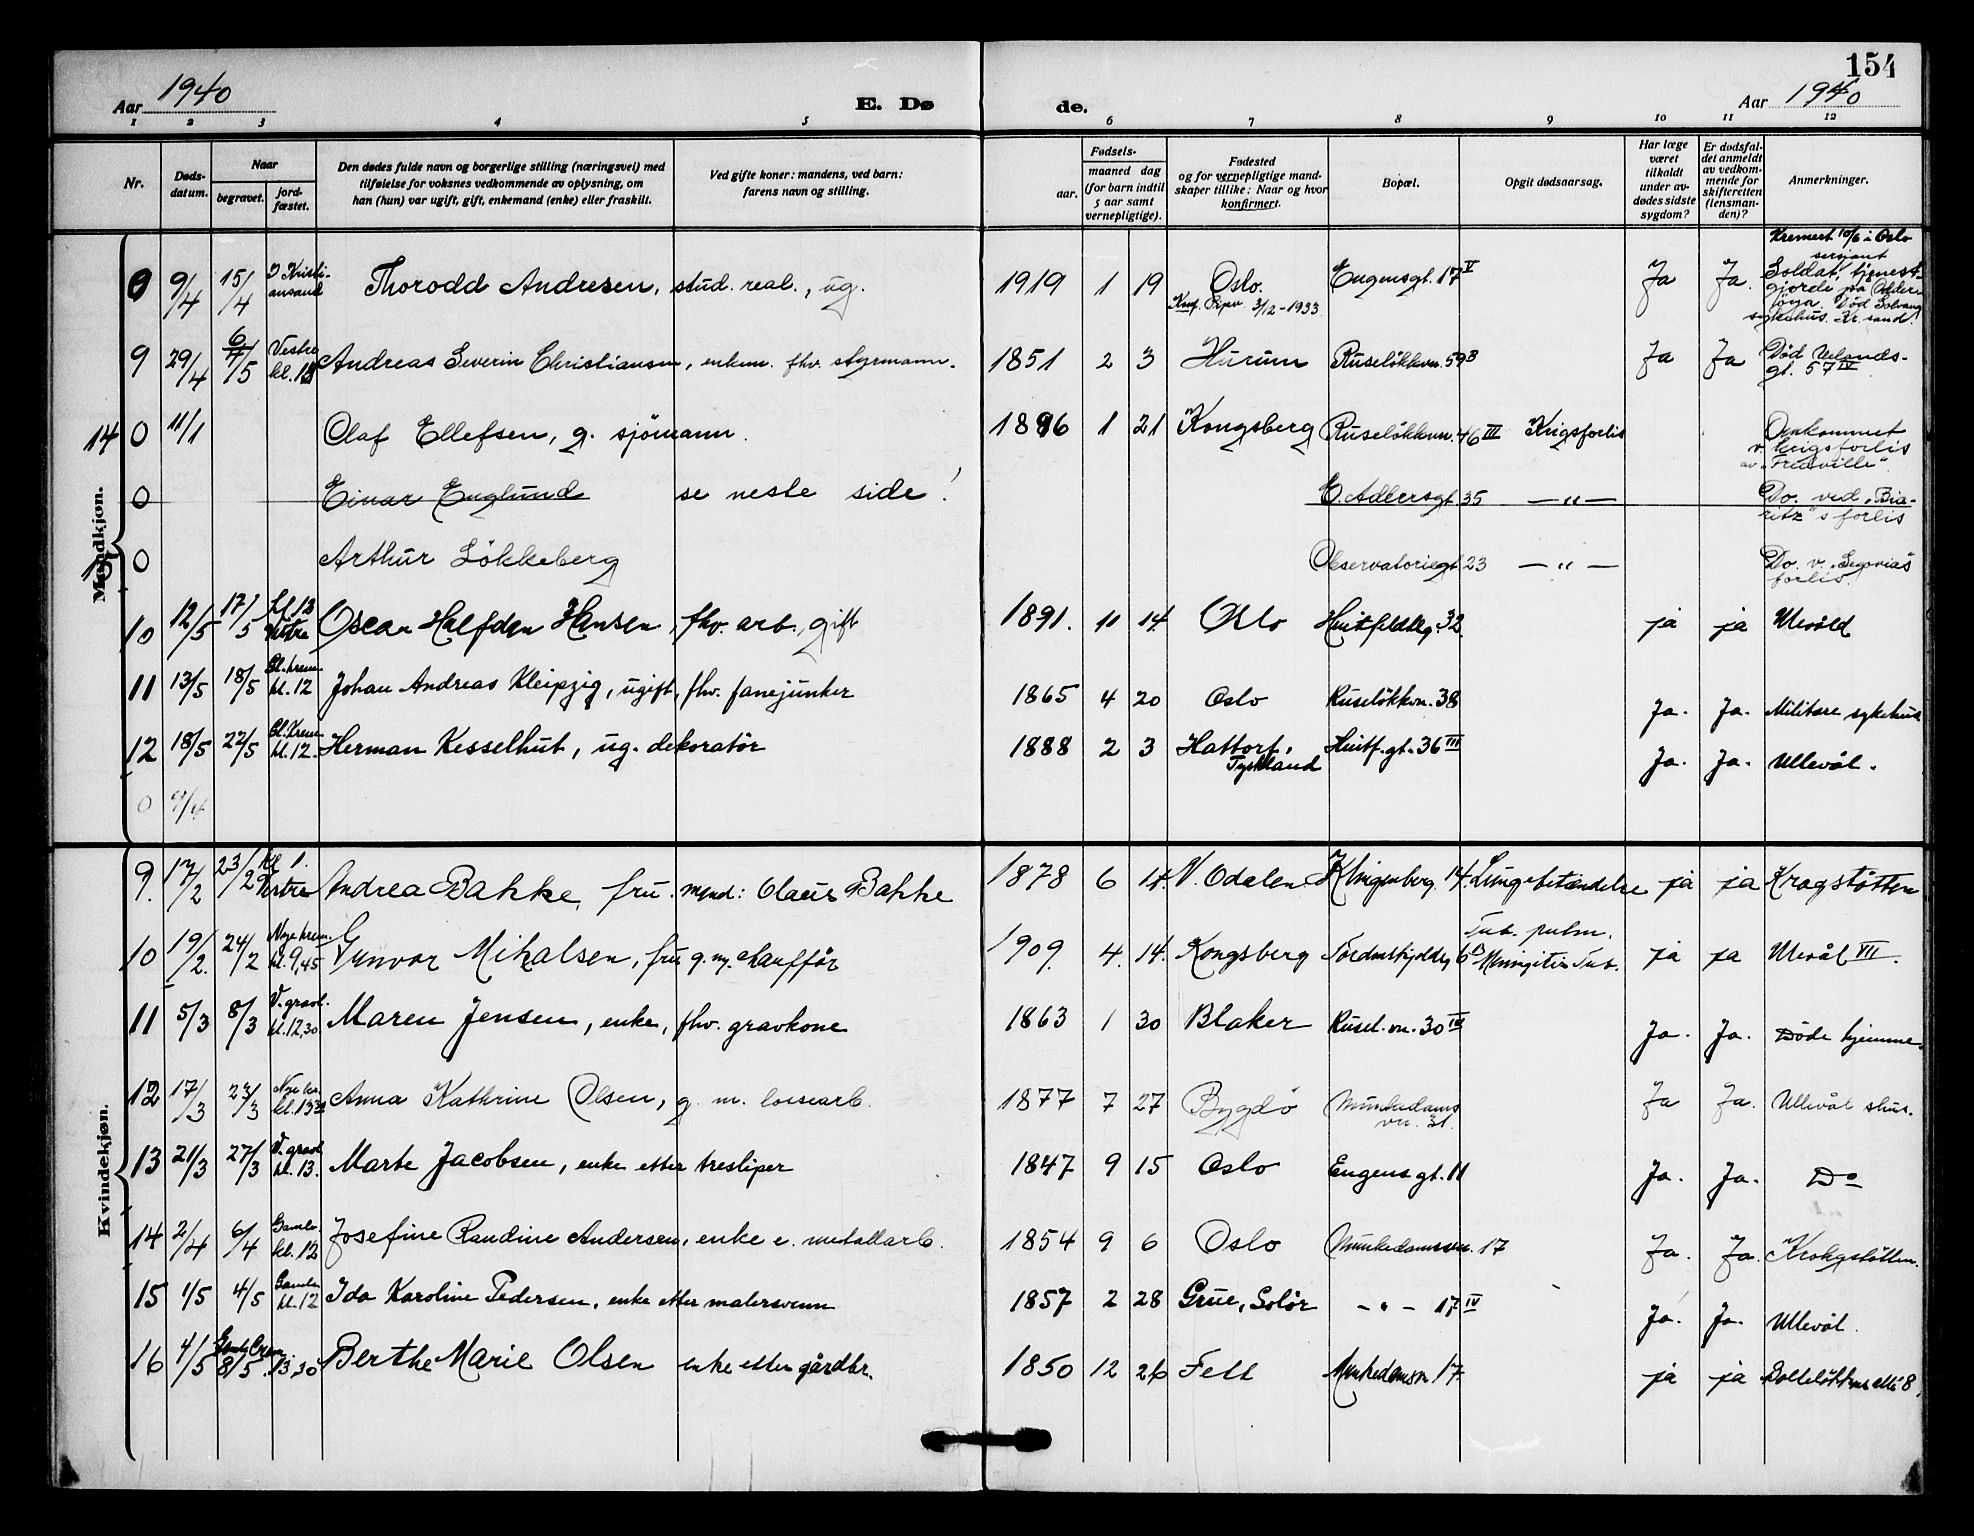 154
Aar 1940 E. Dø de. Aar 1940
1 2 3 4 5 6 7 8 9 10 11 12
Nr.
Døds-
datum.
Naar
begravet.
jord-
fæstet.
Den dødes fulde navn og borgerlige stilling (næringsvei) med
tilføielse for voksnes vedkommende av oplysning, om
han (hun) var ugift, gift, enkemand (enke) eller fraskilt.
Ved gifte koner: mandens, ved barn:
farens navn og stilling.
Fødsels-
aar.
maaned dag
(for barn indtil
5 aar samt
vernepligtige).
Fødested
og for vernepligtige mand-
skaper tillike: Naar og hvor
konfirmert.
Bopæl.
Opgit dødsaarsag.
Har læge
været
tilkaldt
under av-
dødes sidste
sygdom?
Er dødsfal-
det anmeldt
av vedkom-
mende for
skifteretten
(lensman-
den)?
Anmerkninger.
Mandkjøn.
0 9/4 15/4 I Kristi-
ansand
Thorodd Andresen, stud. real., ug. 1919 1 19 Oslo.
Konf. Piper. 3/12-1933
Eugensgt. 17 V Ja Ja.
Kremert 10/6 i Oslo
serjant
Soldat, tjenest-
gjorde på Odder-
øya. Død Solvang
sykehus. Kr.sand!
9 29/4 6/5 Vestre
kl. 13
Andreas Severin Christiansen, enkem. fhv. styrmann. 1851 2 3 Hurum Ruseløkkvn. 59 B Ja Ja
Død Uelands-
gt. 57 IV
14 0 11/1 Olaf Ellefsen, g. sjömann. 1896 1 21 Kongsberg Ruseløkkvn. 46 III Krigsforlis
Omkommet
v. krigsforlis
av "Fredville"
0 Einar Englund se neste side! E. Adlersgt 35 — " —
Do. ved "Bia-
ritz"s forlis
0 Arthur Lökkeberg Observatoriegt 23 — " —
Do. v. "Segovias
forlis
10 12/5 17/5 kl. 13
Vestre
Oscar Halfdan Hansen, fhv. arb., gift 1891. 11 14. Oslo Huitfeldtsg. 32 ja ja Ulevåld
11 13/5 18/5 Gl. krem.
kl. 12
Johan Andreas Kleipzig, ugift, fhv. fanejunker 1865 4 20 Oslo Ruseløkkvn. 38 Ja. Ja. Militære sykehus
12 18/5 22/5 Gl. Krem
kl. 12.
Herman Kesselhut, ug. dekoratør 1888 2 3 Hattorf,
Tyskland
Huitf.gt. 36 III Ja. Ja. Ullevål.
0 9/4
Kvindekjøn.
9. 17/2 23/2 Kl 1.
Vestre
Andrea Bakke, fru. Mand: Olaus Bakke 1878 6 14. V. Odalen Klingenberg. 14. Lungebetændelse ja ja Krogstøtten
10 19/2. 24/2 Nye krem.
kl. 9,45
Gunvor Mikalsen, fru g.m. chauffør 1909. 4. 14. Kongsberg Tordenskjoldsg 6 B
Tub. pulm.
Meningitis Tub. ja ja Ulevål VII.
11 5/3 8/3 V. gravl.
kl. 12,30
Maren Jensen, enke, fhv. gravkone 1863 1 30 Blaker Rusel.vn. 30 IV Ja. Ja. Døde hjemme.
12 17/3 23/3 Nye kr.
kl. 13 30
Anna Kathrine Olsen, g. m. losearb. 1877 7 27 Bygdø Munkedams
vn. 31.
Ja Ja. Ullevål shus.
13 21/3 27/3 V. gravl
kl. 13.
Marte Jacobsen, enke etter tresliper 1847 9 15 Oslo Eugens gt. 11 Ja. Ja. Do
14 2/4 6/4 Gamle
kl. 12
Josefine Randine Andersen, enke e. metallarb. 1854 9 6 Oslo Munkedamsvn. 17 Ja. Ja. Krohgstøtten.
15 1/5 4/5 Gamle
kl. 12
Ida Karoline Pedersen, enke etter malersvenn 1857 2 28 Grue, Solør — " — 17 IV Ja. Ja. Ullevål.
16 4/5 8/5 Gamle Crem.
13.30
Berthe Marie Olsen enke etter gårdbr. 1850 12 26 Fett Munkedamsvn 17. ja ja